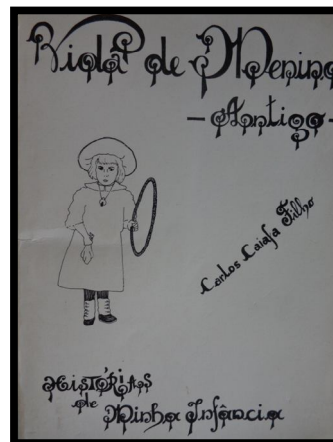 Vida de Menino
- Antigo -
Carlos Caiafa Filho
HISTÓRIAS
de Minha Infância